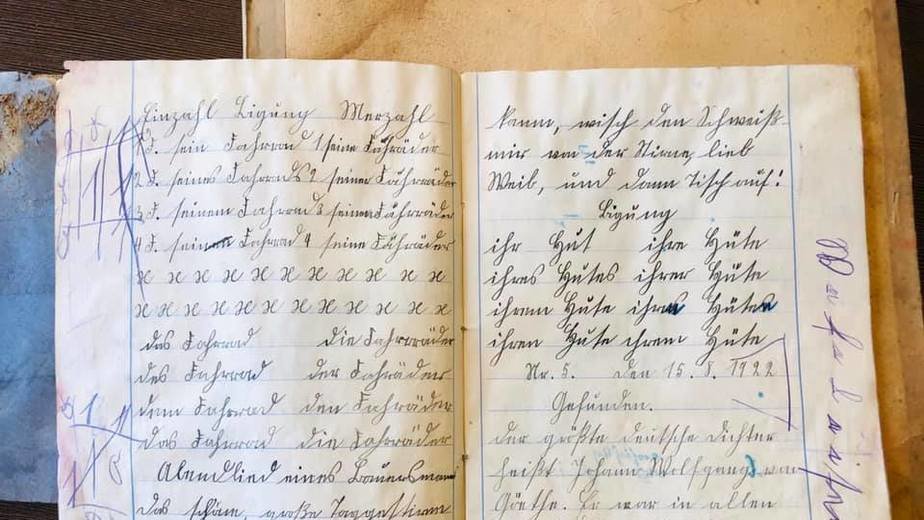 Einzahl Bigung Merzahl
1 F. sein Fahrrad 1 seine Fahräder
2 F. seines Fahrrads 2 seiner Fährräder
3 F. seinem Fahrrad 3 seinen Fährräder
4 F. seinen Fahrrad 4 seine Fähräder
x x x x x x x x x x x
x x x x x x x x x x x
das Fahrrad die Fahrräder
des Fahrrad der Fahräder
dem Fahrrad den Fahräder
das Fahrrad die Fahrräder
Abendlied eines Bauersmann
Das schöne, große Taggestirne
kann, wisch den Schweiß
mir von der Stirne, lieb
Weib, und dann Tisch auf!
Bigung
ihr Hut ihre Hüte
ihres Hutes ihrer Hüte
ihrem Hute ihren Hüten
ihren Hute ihrem Hüte
Nr. 5. den 15. 5. 1922
Gefunden.
Der größte deutsche Dichter
heißt Johann Wolfgang von
Göethe. Er war in allen